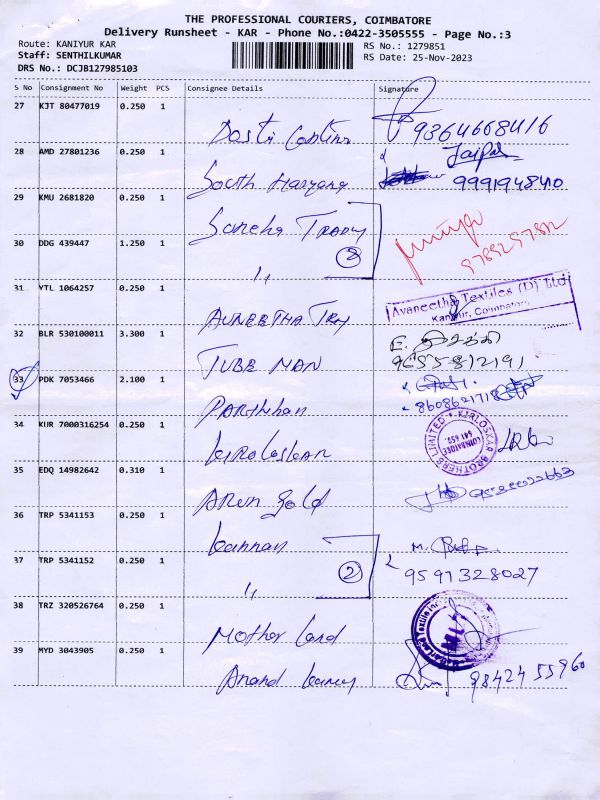 THE PROFESSIONAL COURIERS, COIMBATORE
Delivery Runsheet - KAR - Phone No.:0422-3505555 - Page No.:3
Route: KANIYUR KAR
RS No.: 1279851
Staff: SENTHILKUMAR
RS Date: 25-Nov-2023
DRS No.: DCJB127985103
S No Consignment No Weight PCS Consignee Details Signature
27 KJT 80477019 0.250 1
9364668416
28 AMD 27801236 0.250 1
South Haryana 9991948410
29 KMU 2681820 0.250 1
30 DDG 439447 1.250 1
2
9789297892
"
31 VTL 1064257 0.250 1
Avaneetha Textiles (P) Ltd
Kaniyur, Coimbatore
32 BLR 530100011 3.300 1
TUBE MAN 9655812191
33 PDK 7053466 2.100 1
Parthiban
34 KUR 7000316254 0.250 1
KIRLOSKAR BROTHERS LIMITED
COIMBATORE 641 659
Kirloskar
35 EDQ 14982642 0.310 1
Arun Gold
36 TRP 5341153 0.250 1
Kannan M.
37 TRP 5341152 0.250 1
2 9597328027
"
38 TRZ 320526764 0.250 1
Mother Land
39 MYD 3043905 0.250 1
Anand 9842455960